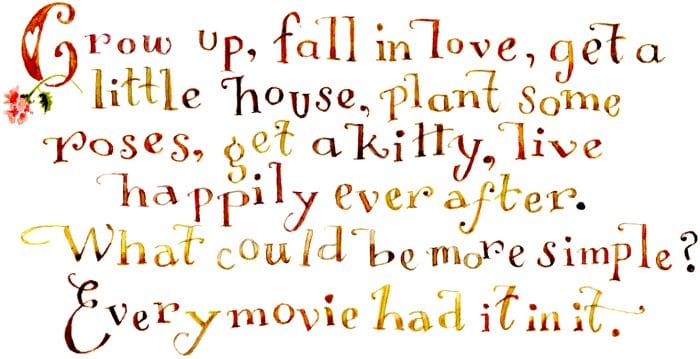 Grow up, fall in love, get a
little house, plant some
roses, get a kitty, live
happily ever after.
What could be more simple?
Every movie had it in it.